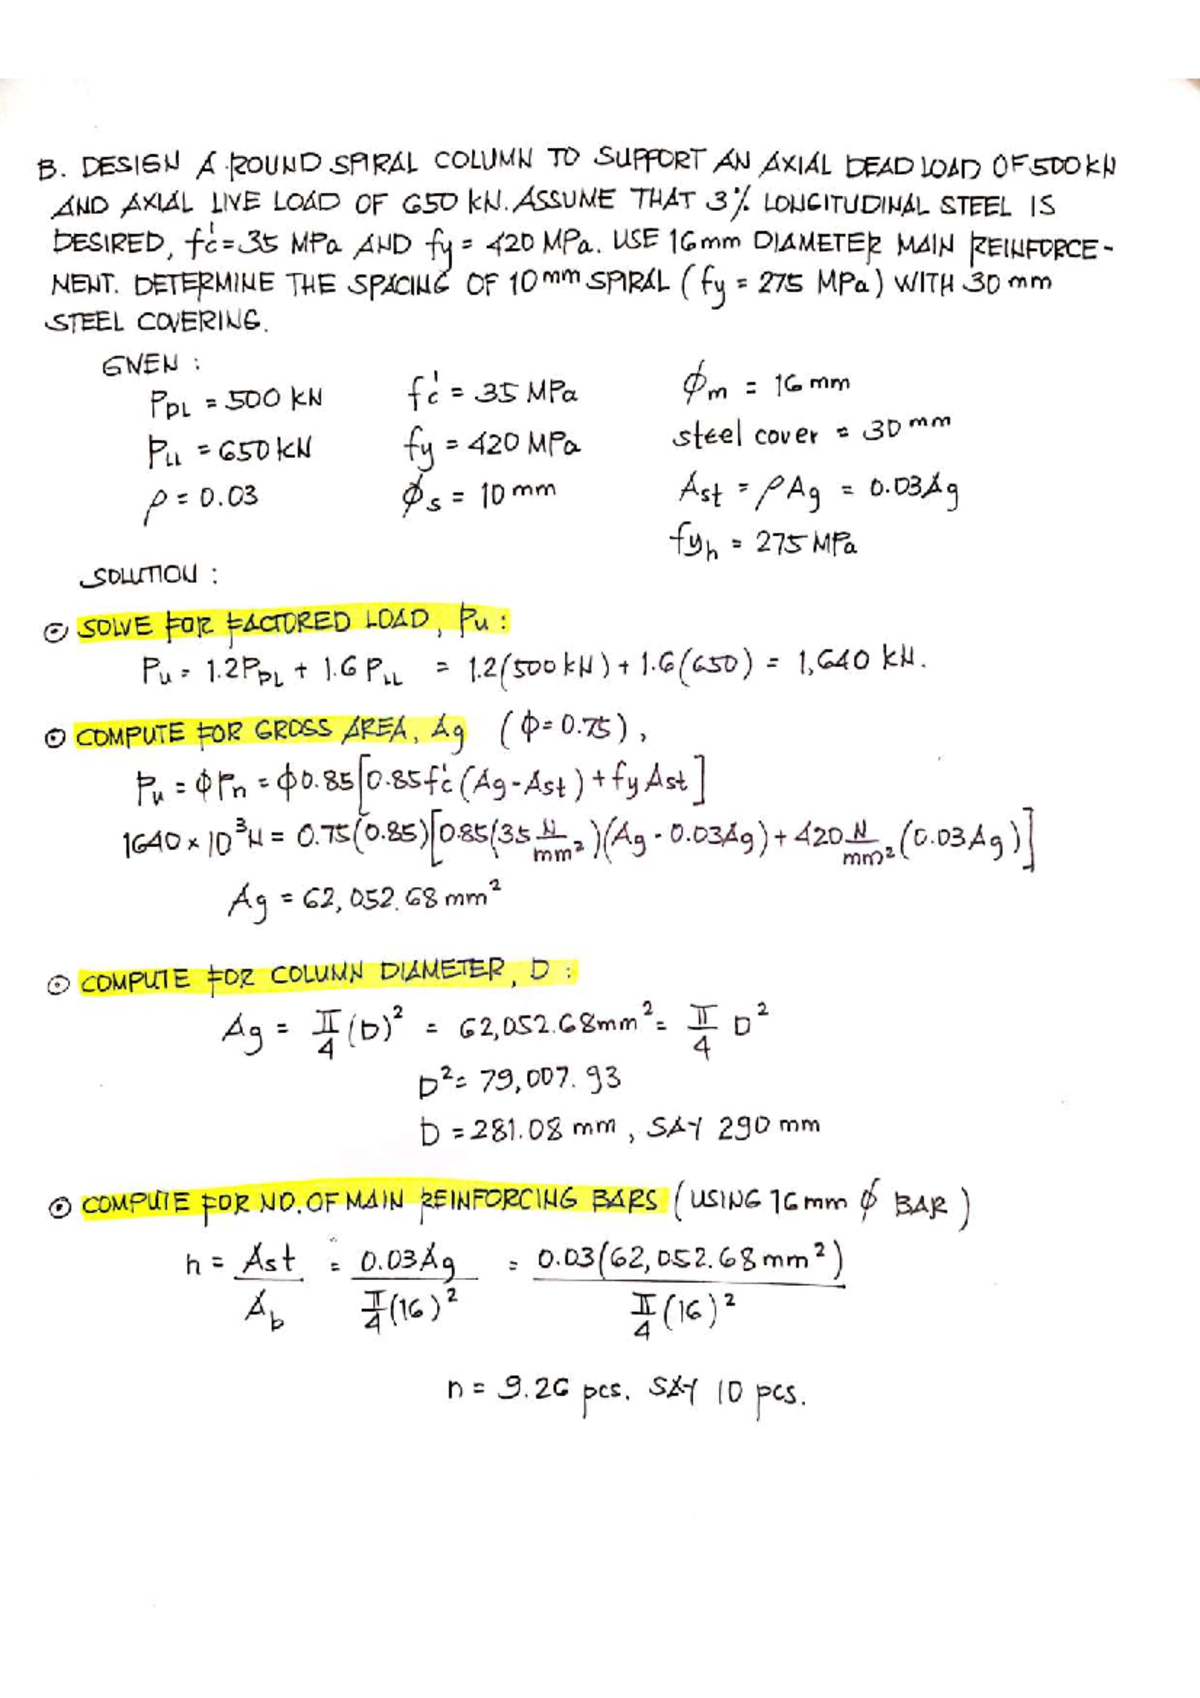 B. DESIGN A ROUND SPIRAL COLUMN TO SUPPORT AN AXIAL DEAD LOAD OF 500 kN
AND AXIAL LIVE LOAD OF 650 kN. ASSUME THAT 3% LONGITUDINAL STEEL IS
DESIRED, fc' = 35 MPa AND fy = 420 MPa. USE 16mm DIAMETER MAIN REINFORCE-
MENT. DETERMINE THE SPACING OF 10 mm SPIRAL (fy = 275 MPa) WITH 30 mm
STEEL COVERING.
GIVEN :
PDL = 500 kN fc' = 35 MPa ϕm = 16 mm
PLL = 650 kN fy = 420 MPa steel cover = 30 mm
ρ = 0.03 ϕs = 10 mm Ast = ρAg = 0.03Ag
fyh = 275 MPa
SOLUTION :
⊙ SOLVE FOR FACTORED LOAD, Pu :
Pu = 1.2PDL + 1.6 PLL = 1.2(500 kN) + 1.6(650) = 1,640 kN.
⊙ COMPUTE FOR GROSS AREA, Ag (ϕ = 0.75),
Pu = ϕPn = ϕ0.85[0.85fc'(Ag - Ast) + fy Ast]
1640 x 10³N = 0.75(0.85)[0.85(35 N/mm²)(Ag - 0.03Ag) + 420 N/mm² (0.03Ag)]
Ag = 62,052.68 mm²
⊙ COMPUTE FOR COLUMN DIAMETER, D :
Ag = π/4 (D)² = 62,052.68mm² = π/4 D²
D² = 79,007.93
D = 281.08 mm, SAY 290 mm
⊙ COMPUTE FOR NO. OF MAIN REINFORCING BARS (USING 16mm ϕ BAR)
n = Ast/Ab = 0.03Ag / π/4(16)² = 0.03(62,052.68 mm²) / π/4(16)²
n = 9.26 pcs. SAY 10 pcs.